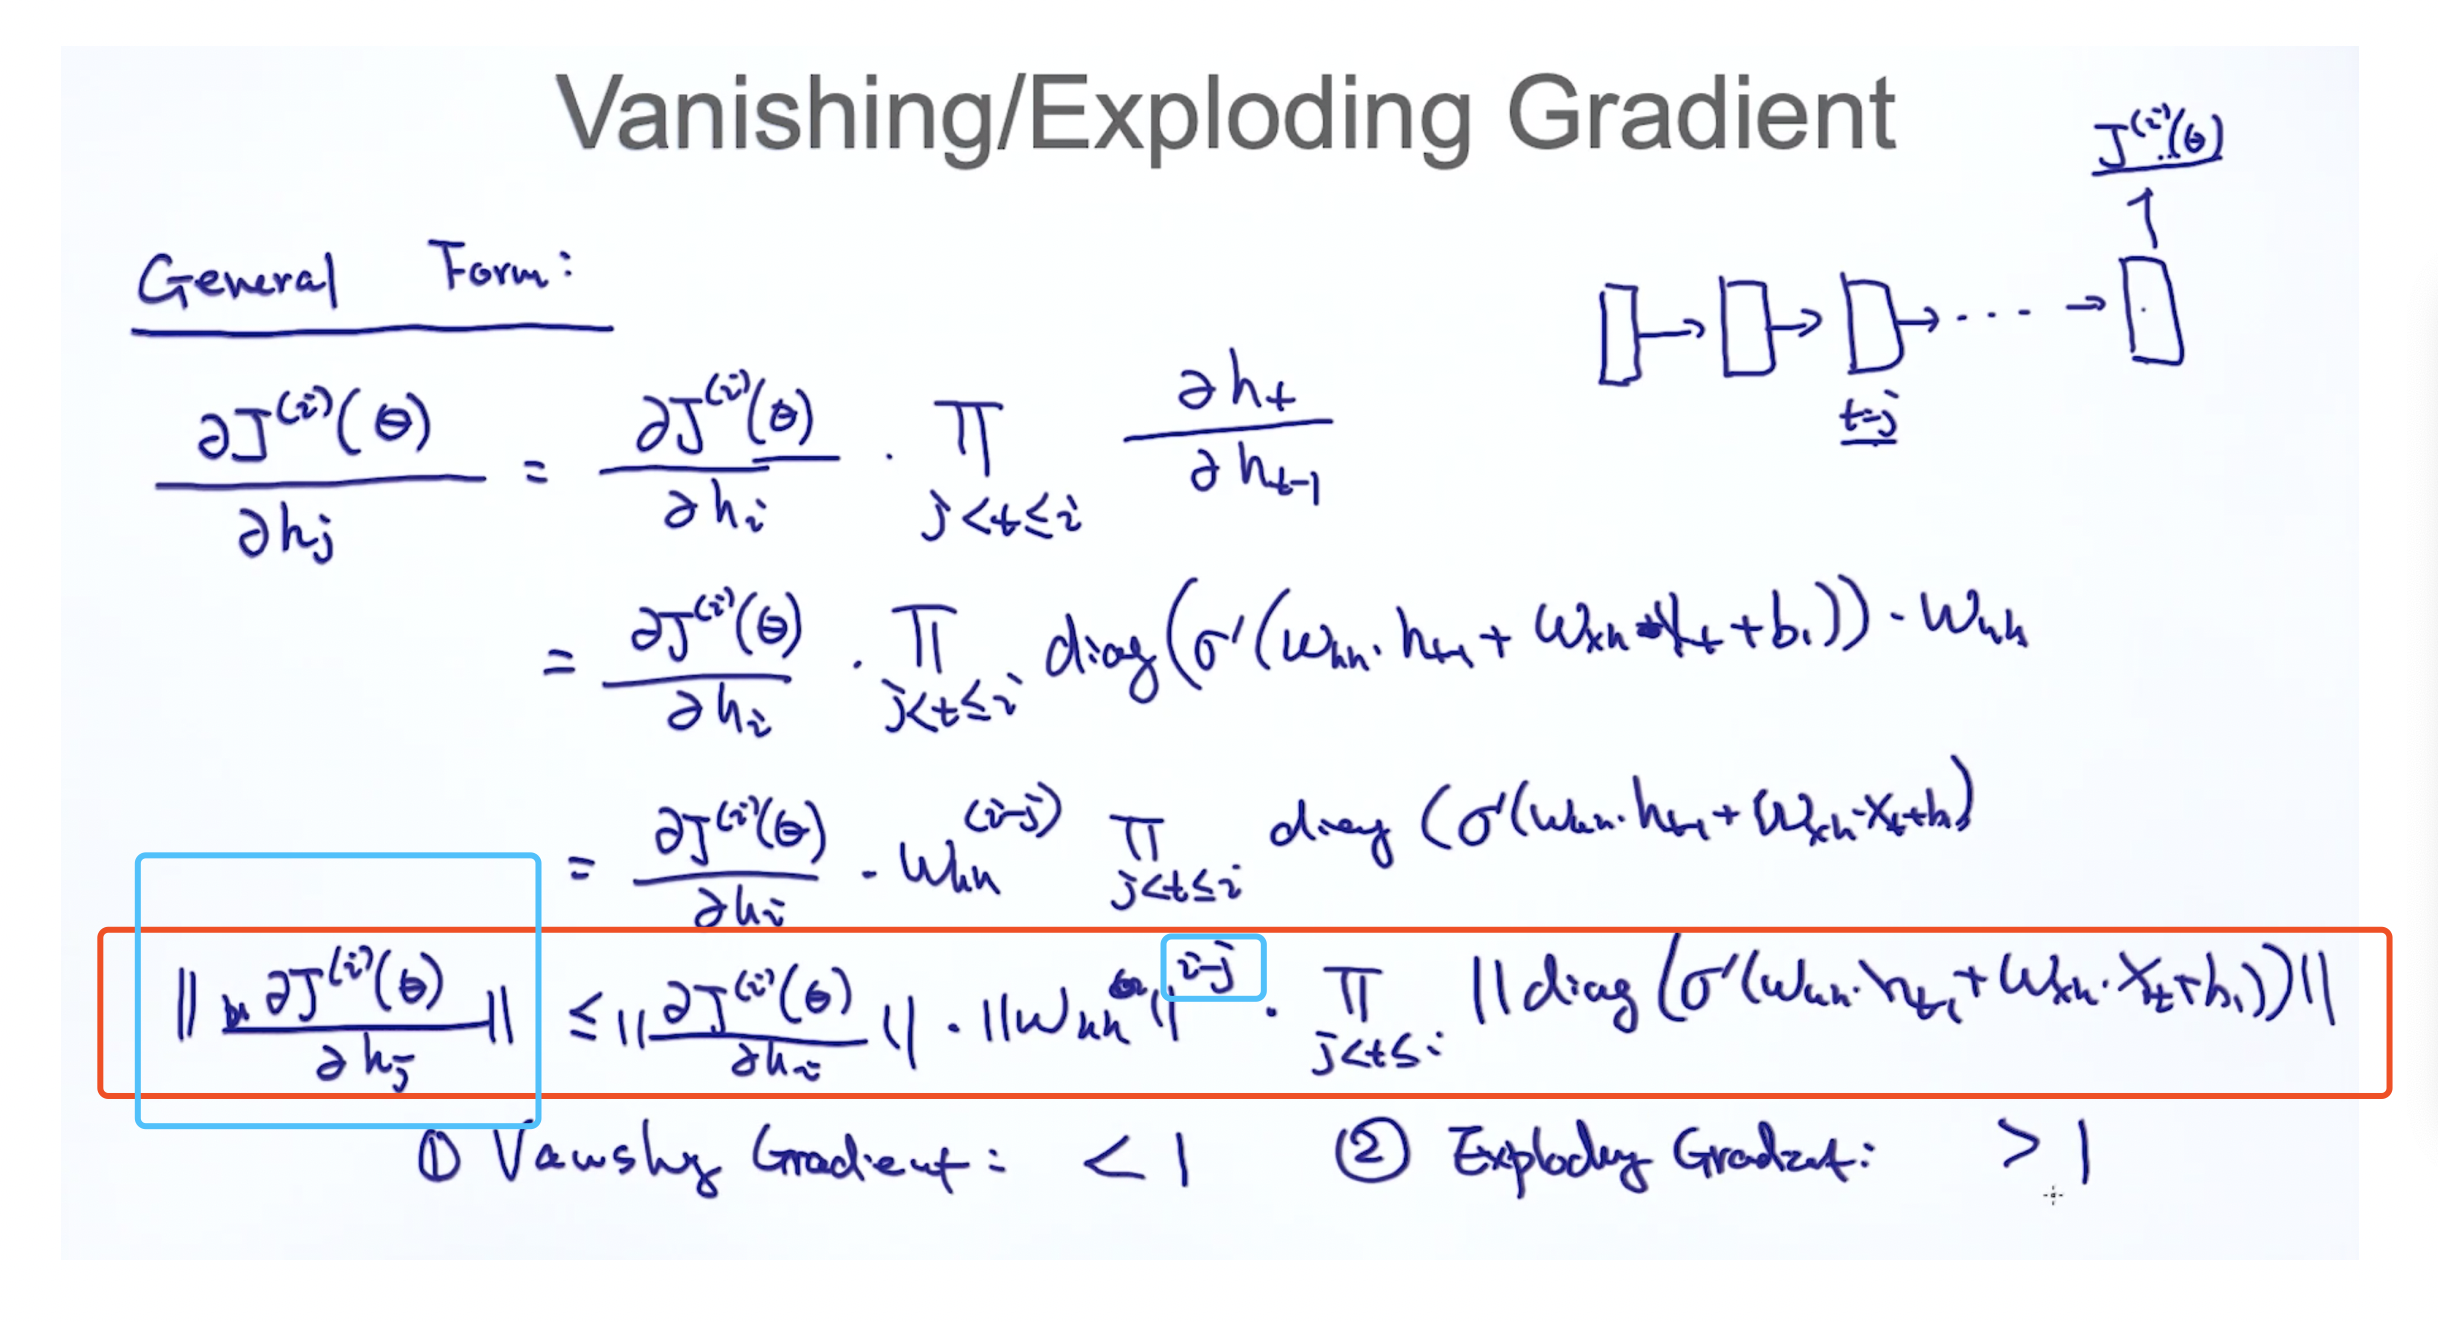 Vanishing/Exploding Gradient
J⁽ⁱ⁾(θ)
General Form:
t=j
∂J⁽ⁱ⁾(θ)/∂hⱼ = ∂J⁽ⁱ⁾(θ)/∂hᵢ · ∏_{j<t≤i} ∂h_t/∂h_{t-1}
= ∂J⁽ⁱ⁾(θ)/∂hᵢ · ∏_{j<t≤i} diag(σ'(W_{hh}·h_{t-1} + W_{xh}·X_t + b₁)) · W_{hh}
= ∂J⁽ⁱ⁾(θ)/∂hᵢ · W_{hh}^{(i-j)} ∏_{j<t≤i} diag(σ'(W_{hh}·h_{t-1} + W_{xh}·X_t + b₁)
||∂J⁽ⁱ⁾(θ)/∂hⱼ|| ≤ ||∂J⁽ⁱ⁾(θ)/∂hᵢ|| · ||W_{hh}||^{i-j} · ∏_{j<t≤i} ||diag(σ'(W_{hh}·h_{t-1} + W_{xh}·X_t + b₁))||
① Vanishing Gradient: < 1 ② Exploding Gradient: > 1